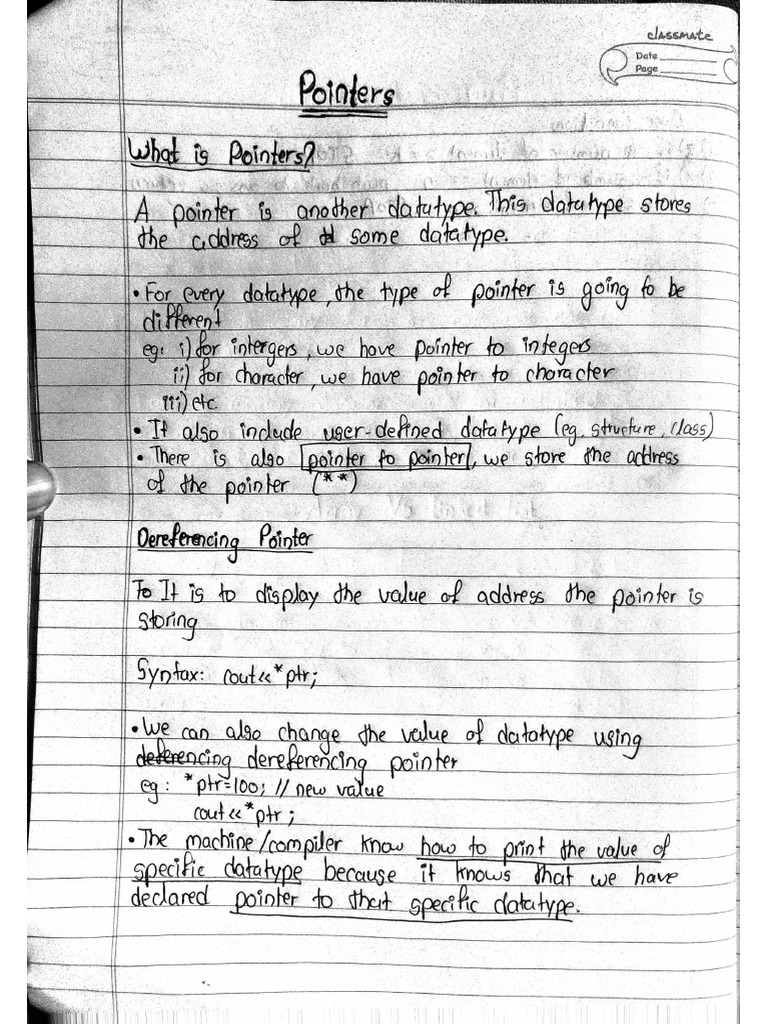 classmate
Date
Page
Pointers
What is Pointers?
A pointer is another datatype. This datatype stores
the address of some datatype.
• For every datatype, the type of pointer is going to be
different
eg: i) for intergers, we have pointer to integers
ii) for character, we have pointer to character
iii) etc.
• It also include user-defined datatype (eg. structure, class)
• There is also pointer to pointer, we store the address
of the pointer (**)
Dereferencing Pointer
To It is to display the value of address the pointer is
storing
Syntax: cout<<*ptr;
• We can also change the value of datatype using
deferencing dereferencing pointer
eg: *ptr=100; // new value
cout<<*ptr;
• The machine/compiler know how to print the value of
specific datatype because it knows that we have
declared pointer to that specific datatype.